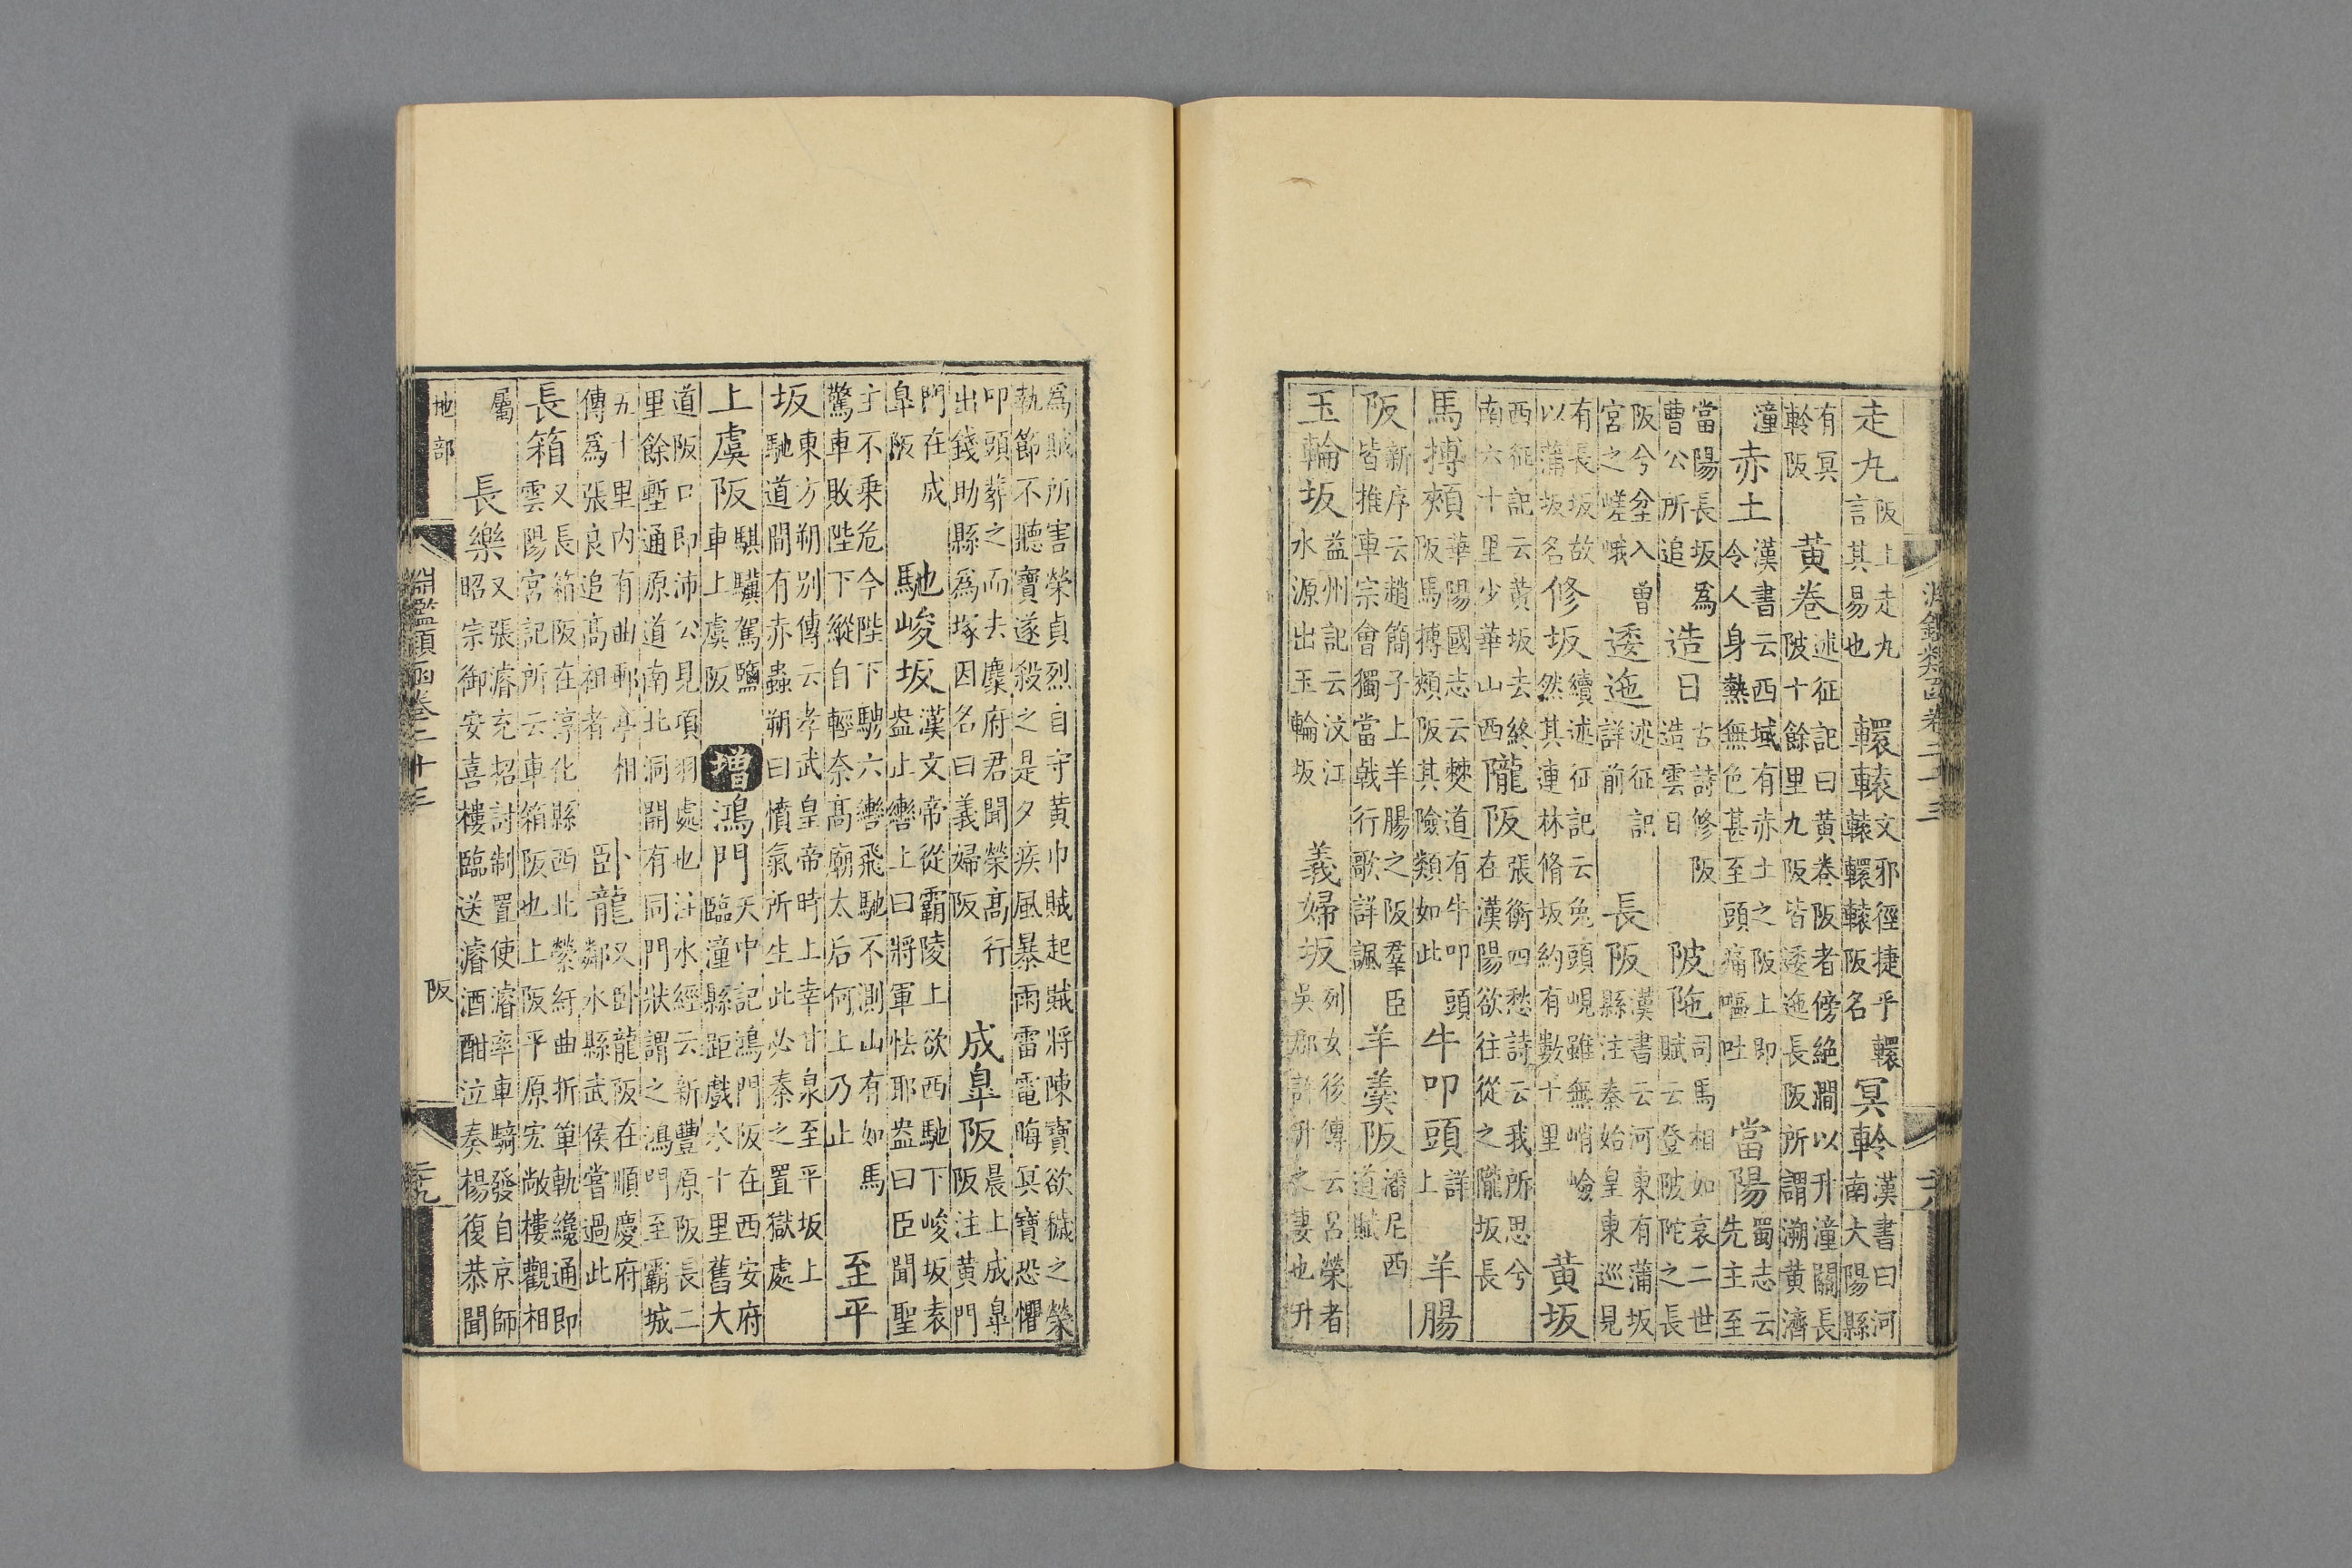 淵鑑類函卷二十三
走丸阪上走丸言其易也轘轅文邪徑捷乎轘轅轘轅阪名冥軨漢書曰河南大陽縣
有冥軨阪黃卷述征記曰黃卷阪者傍絶澗以升潼關長陂十餘里九阪皆逶迤長阪所謂溯黃濟
潼赤土漢書云西域有赤土之阪上即令人身熱無色甚至頭痛嘔吐當陽蜀志云先主至
當陽長坂爲曹公所追造日古詩修阪造雲日陂陁司馬相如哀二世賦云登陂陀之長
阪兮坌入曾宮之嵯峨逶迤述征記詳前長阪漢書云河東有蒲坂縣注秦始皇東巡見
有長坂故以蒲坂名修坂續述征記云兔頭峴雖無峭嶮然其連林脩坂約有數十里黃坂
西征記云黃坂去終南六十里少華山西隴阪張衡四愁詩云我所思兮在漢陽欲往從之隴坂長
馬搏頰華陽國志云僰道有牛叩頭阪馬搏頰阪其險類如此牛叩頭詳上羊腸
阪新序云趙簡子上羊腸之阪羣臣皆推車宗會獨當戟行歌詳諷羊羹阪潘尼西道賦
玉輪坂益州記云汶江水源出玉輪坂義婦坂列女後傳云呂榮者吳郡許升之妻也升
爲賊所害榮貞烈自守黃巾賊起賊將陳寶欲穢之榮執節不聽寶遂殺之是夕疾風暴雨雷電晦冥寶恐懼
叩頭葬之而去麋府君聞榮高行出錢助縣爲塚因名曰義婦阪成臯阪晨上成臯阪注黃門
門在成臯阪馳峻坂漢文帝從霸陵上欲西馳下峻坂袁盎止轡上曰將軍怯耶盎曰臣聞聖
主不乗危今陛下騁六轡飛馳不測山有如馬驚車敗陛下縱自輕奈高廟太后何上乃止至平
坂東方朔別傳云孝武皇帝時上幸甘泉至平坂上馳道間有赤蟲朔曰憤氣所生此必秦之置獄處
上虞阪騏驥駕鹽車上虞阪增鴻門天中記鴻門阪在西安府臨潼縣距戲水十里舊大
道阪口即沛公見項羽處也注水經云新豐原阪長二里餘塹通原道南北洞開有同門狀謂之鴻門至霸城
五十里内有曲郵亭相傳爲張良追高祖者卧龍又卧龍阪在順慶府鄰水縣武侯嘗過此
長箱又長箱阪在淳化縣西北縈紆曲折單軌纔通即雲陽宮記所云車箱阪也上阪平原宏敞樓觀相
屬長樂又張濬充招討制置使濬率車騎發自京師昭宗御安喜樓臨送濬酒酣泣奏楊復恭聞
地部 阪
淵鑑類函卷二十三